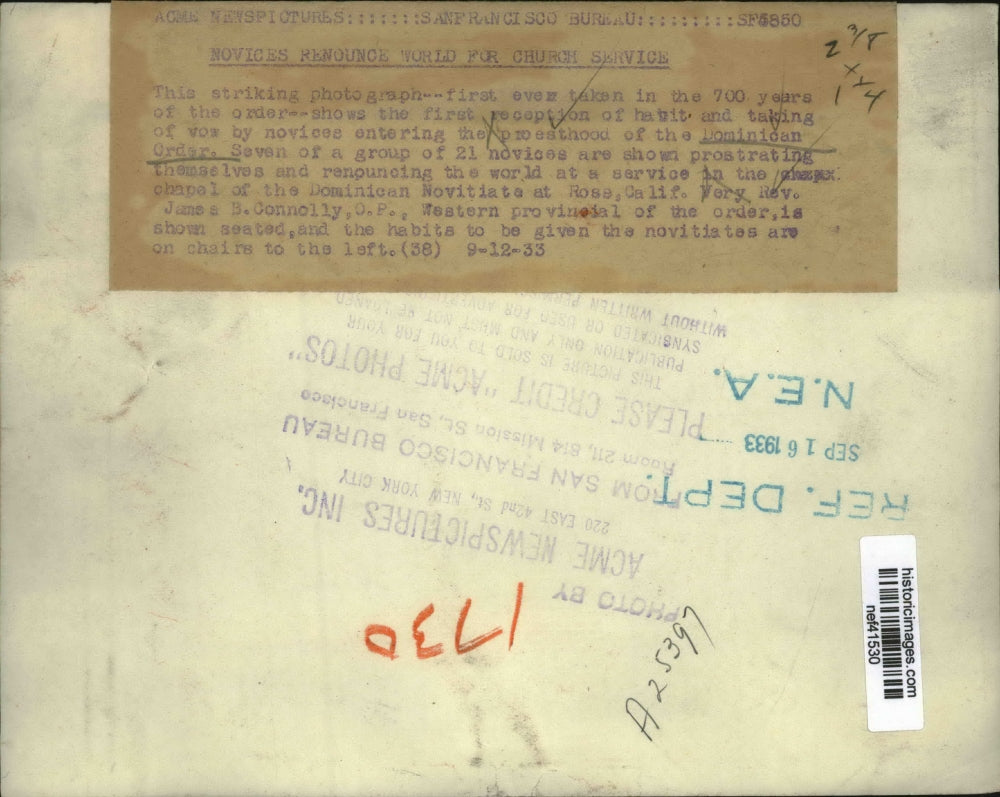 ACME NEWSPICTURES:::::::SANFRANCISCO BUREAU:::::::::SF5850
NOVICES RENOUNCE WORLD FOR CHURCH SERVICE
This striking photograph--first ever taken in the 700 years
of the order--shows the first reception of habit and taking
of vow by novices entering the proesthood of the Dominican
Order. Seven of a group of 21 novices are shown prostrating
themselves and renouncing the world at a service in the
chapel of the Dominican Novitiate at Ross,Calif. Very Rev.
James B.Connolly,O.P., Western provincial of the order,is
shown seated,and the habits to be given the novitiates are
on chairs to the left.(38) 9-12-33
2 3/8
x
1 1/4
PHOTO BY
ACME NEWSPICTURES INC.
220 EAST 42nd St., NEW YORK CITY
FROM SAN FRANCISCO BUREAU
Room 211, 814 Mission St., San Francisco
PLEASE CREDIT "ACME PHOTOS"
THIS PICTURE IS SOLD TO YOU FOR YOUR
PUBLICATION ONLY AND MUST NOT BE LOANED
SYNDICATED OR USED FOR
WITHOUT WRITTEN
REF. DEPT.
SEP 16 1933
N.E.A.
1730
A25397
historicimages.com
nef41530